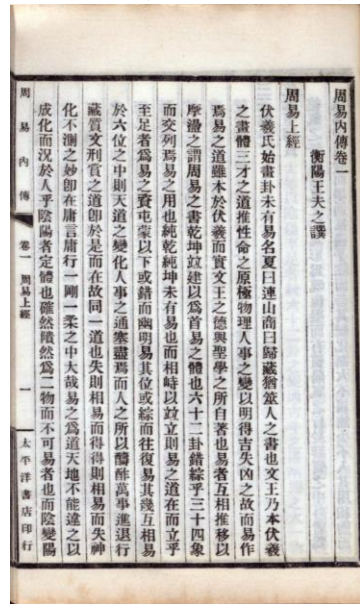 周易內傳卷一
衡陽王夫之譔
周易上經
伏羲氏始畫卦未有易名夏曰連山商曰歸藏猶筮人之書也文王乃本伏羲
之畫體三才之道推性命之原極物理人事之變以明得吉失凶之故而易作
焉易之道雖本於伏羲而實文王之德與聖學之所自著也易者互相推移以
摩盪之謂周易之書乾坤竝建以爲首易之體也六十二卦錯綜乎三十四象
而交列焉易之用也純乾純坤未有易也而相峙以竝立則易之道在而立乎
至足者爲易之資屯蒙以下或錯而幽明易其位或綜而往復易其幾互相易
於六位之中則天道之變化人事之通塞盡焉而人之所以酬酢萬事進退行
藏質文刑賞之道卽於是而在故同一道也失則相易而得得則相易而失神
化不測之妙卽在庸言庸行一剛一柔之中大哉易之爲道天地不能違之以
成化而況於人乎陰陽者定體也確然隤然爲二物而不可易者也而陰變陽
周易內傳
卷一 周易上經
一
太平洋書店印行